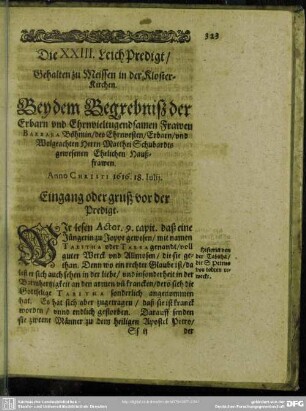 323
Die XXIII. Leich Predigt/
Gehalten zu Meissen in der Kloster-
Kirchen.
Bey dem Begrebniß der
Erbarn vnd Ehrnvieltugendsamen Frawen
BARBARA Böhmin/ des Ehrnvesten/ Erbarn/ vnd
Wolgeachten Herrn Matthei Schubardts
gewesenen Ehelichen Hauß-
frawen.
Anno CHRISTI 1616. 18. Iulii.
Eingang oder gruß vor der
Predigt.
WIr lesen Actor. 9. capit. daß eine
Jüngerin zu Joppe gewesen/ mit namen
TABITHA oder TABEA genandt/ voll
guter Werck vnd Allmosen/ die sie ge-
than. Denn wo ein rechter Glaube ist/ da
leß er sich auch sehen in der liebe/ vnd sonderheit in der
Barmhertzigkeit an den armen vñ francken/ dero sich die
Gottselige TABITHA sonderlich angenommen
hat. Es hat sich aber zugetragen/ daß sie ist kranck
worden/ vnnd endlich gestorben. Darauff senden
sie zweene Männer zu dem heiligen Apostel Petro/
Historia von
der Tabitha/
die S. Petrus
von todten er-
weckt.
Ss ij
der